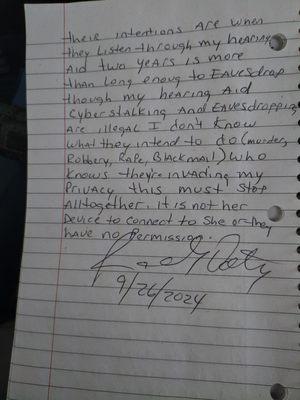 their intentions Are when
they Listen through my hearing
Aid two years is more
than Long enoug to EAVesdrop
though my hearing Aid
Cyberstalking And EAVesdropping
Are illegal I don't Know
what they intend to do (murder,
Robbery, Rape, Blackmail) who
Knows they're invading my
Privacy this must stop
Alltogether. it is not her
Device to connect to She or they
have no permission.
9/26/2024